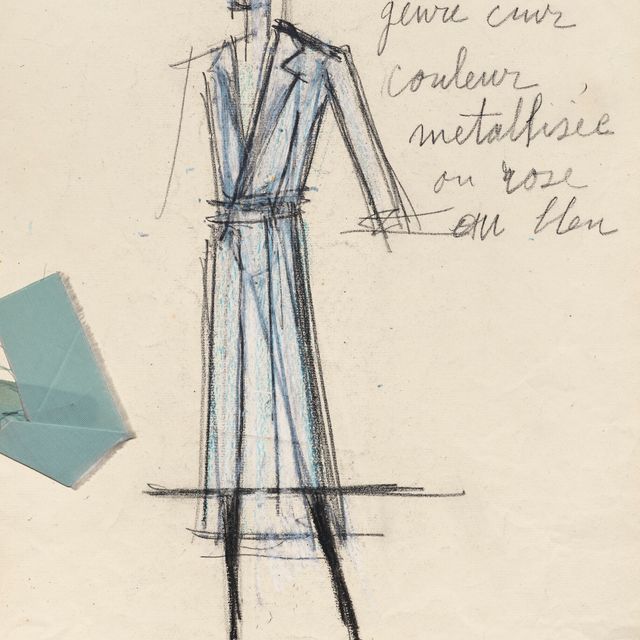 genre cuir
couleur
metallisée
ou rose
ou bleu